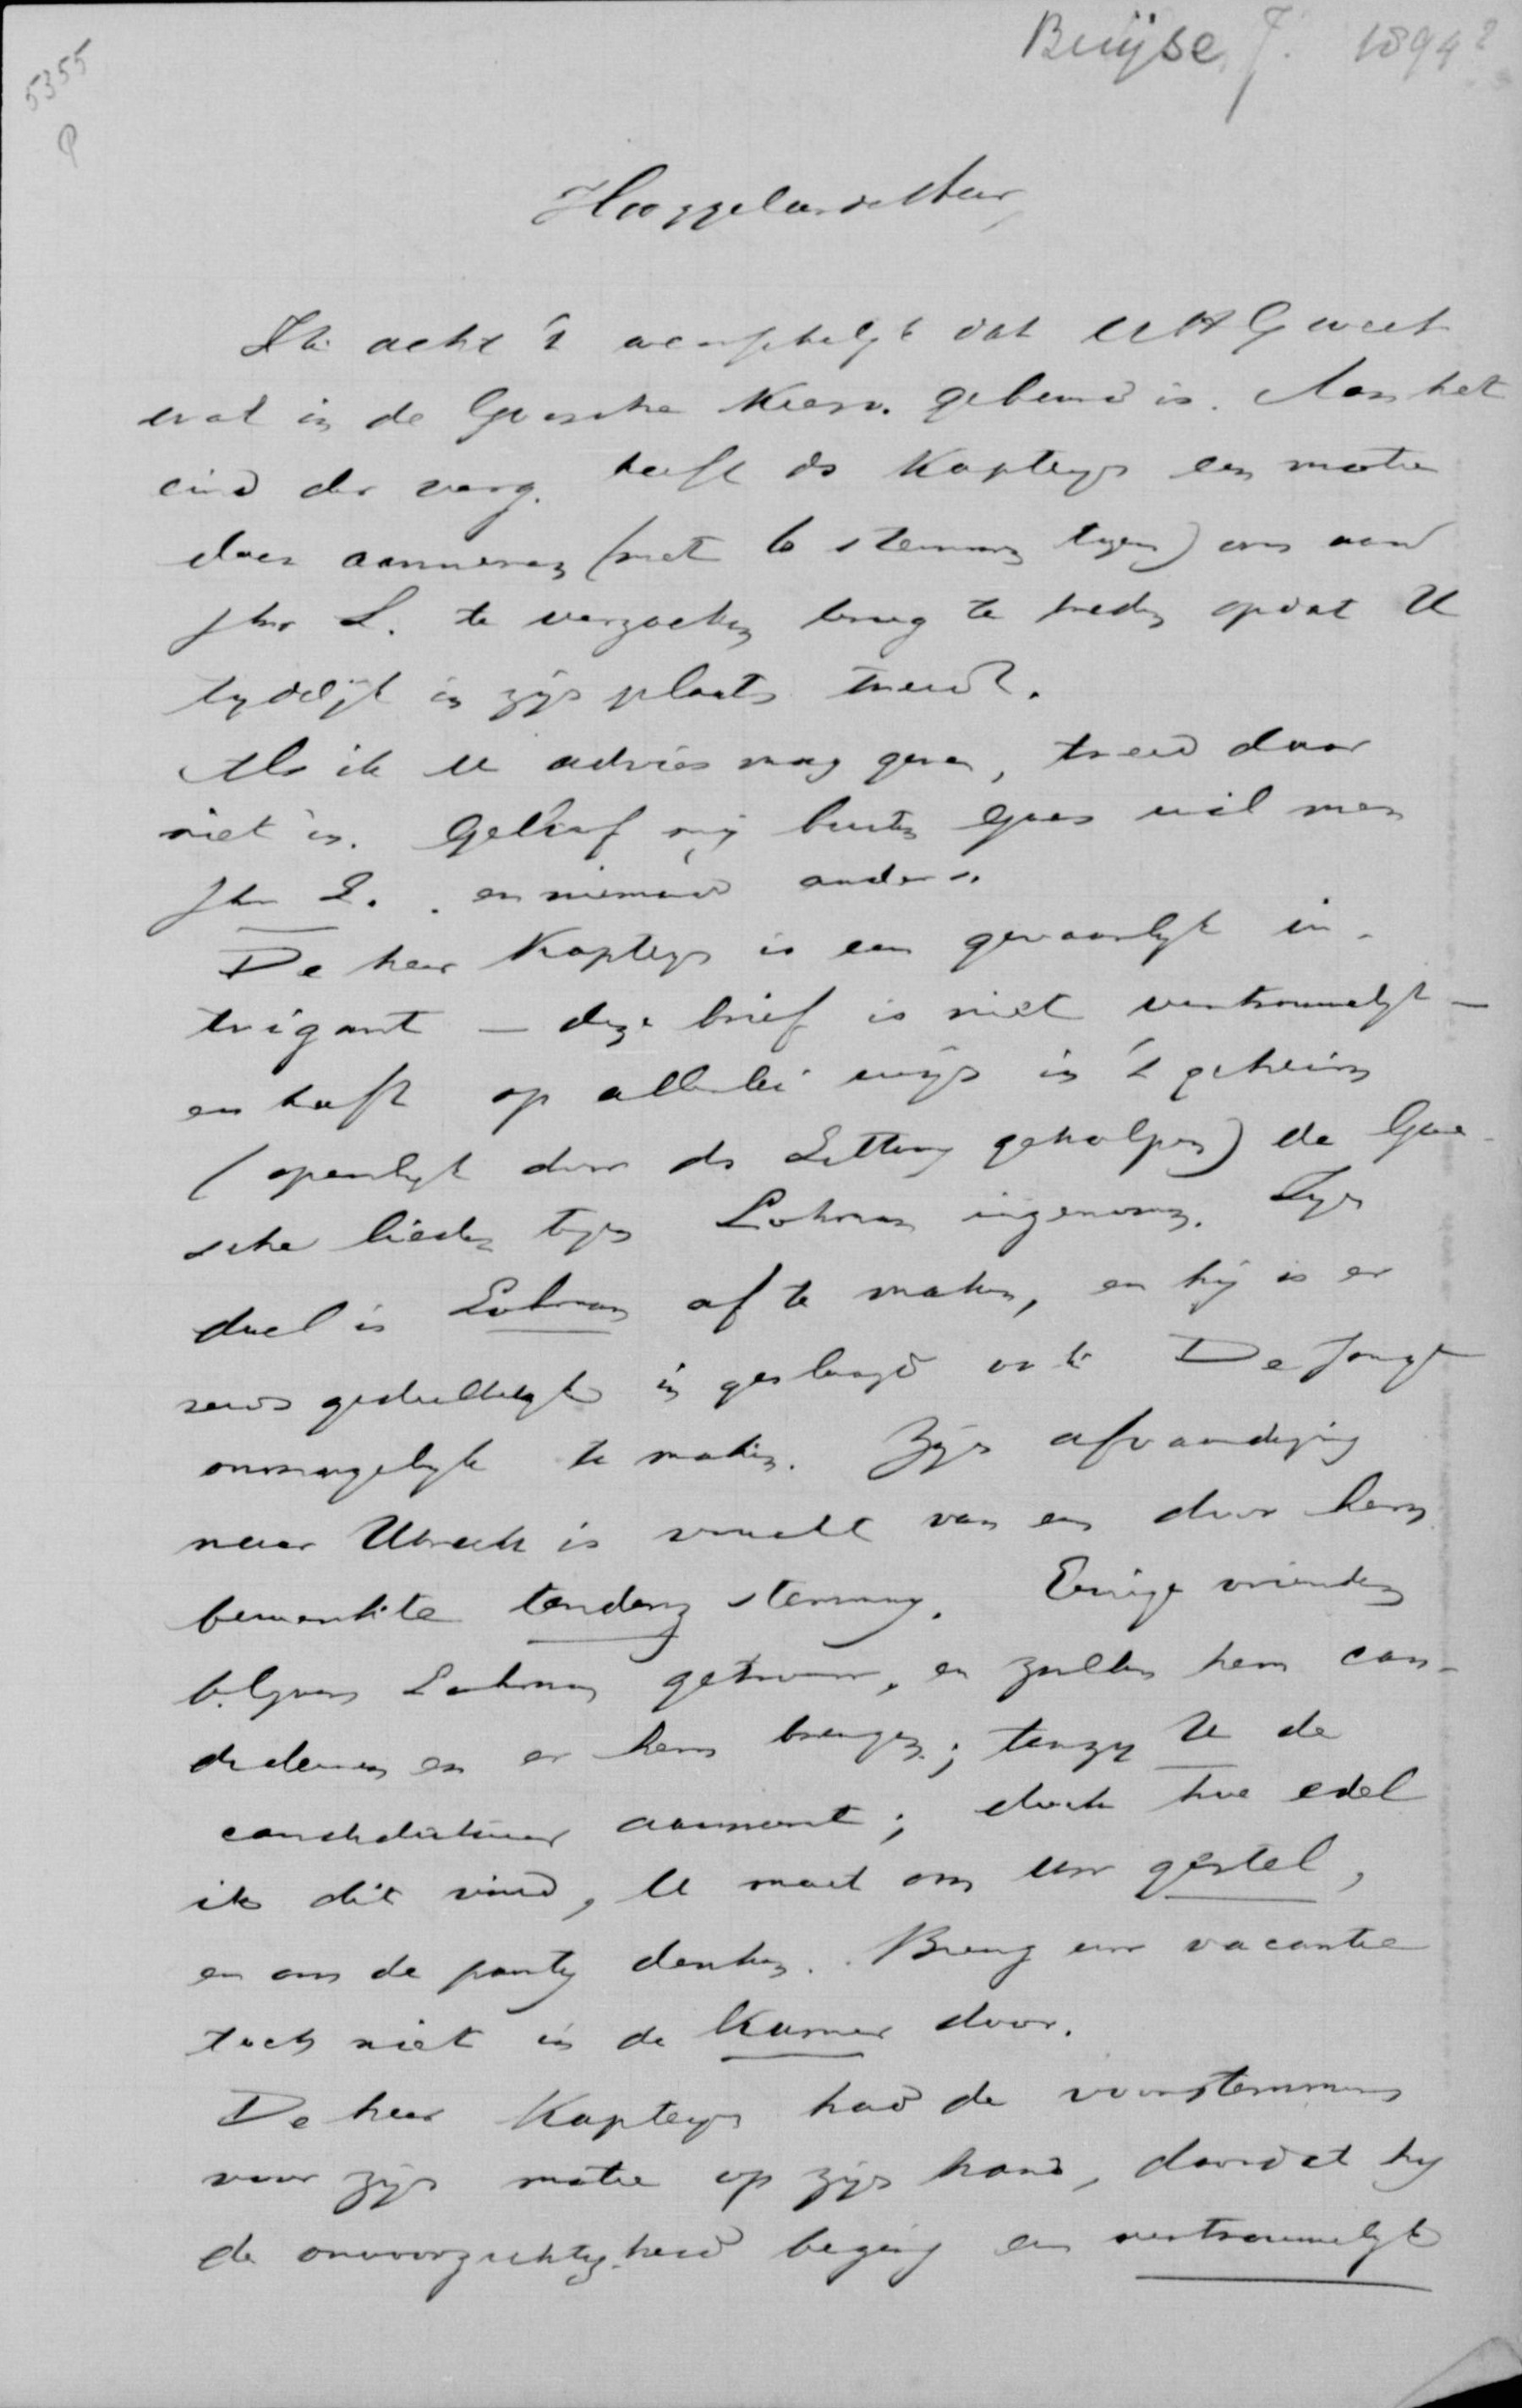 5355
P
Buijse, J. 1894?
Hooggeleerde Heer,
Ik acht 't wenschelijk dat UHG weet
wat in de Goesche Kiesv. gebeurd is. Aan het
eind der verg. heeft ds Kapteyn een motie
doen aannemen (met 6 stemmen tegen) om aan
Jhr L. te verzoeken terug te treden opdat U
tydelijk in zijn plaats treedt.
Als ik U advies mag geven, treed daar
niet in. Geloof mij buiten Goes wil men
Jhr L. en niemand anders.
De heer Kapteyn is een gevaarlijk in-
trigant — deze brief is niet vertrouwelijk —
en heeft op allerlei wijs in 't geheim
(openlijk door ds Sitting geholpen) de Goe-
sche lieden tegen Lohman ingenomen. Zijn
doel is Lohman af te maken, en hij is er
reeds gedeeltelijk in geslaagd ook De Jonge
onmogelijk te maken. Zijn afvaardiging
naar Utrecht is vrucht van een door hem
bewerkte tendenz stemming. Eenige vrienden
blijven Lohman getrouw, en zullen hem can-
dideeren en er hem brengen; tenzij U de
candidatuur aanneemt; doch hoe edel
ik dit vind, U moet om uw gestel,
en om de party denken. Breng uw vacantie
toch niet in de Kamer door.
De heer Kapteyn had de voorstemmers
voor zijn motie op zijn hand, doordat hij
de onvoorzichtigheid beging een vertrouwelijk